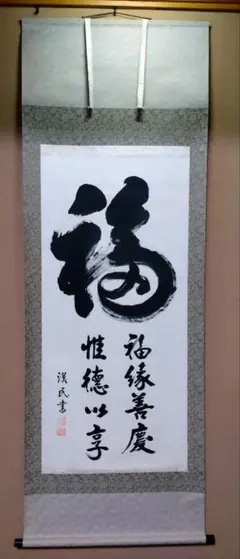 福
福缘善慶
惟德以享
漢民書